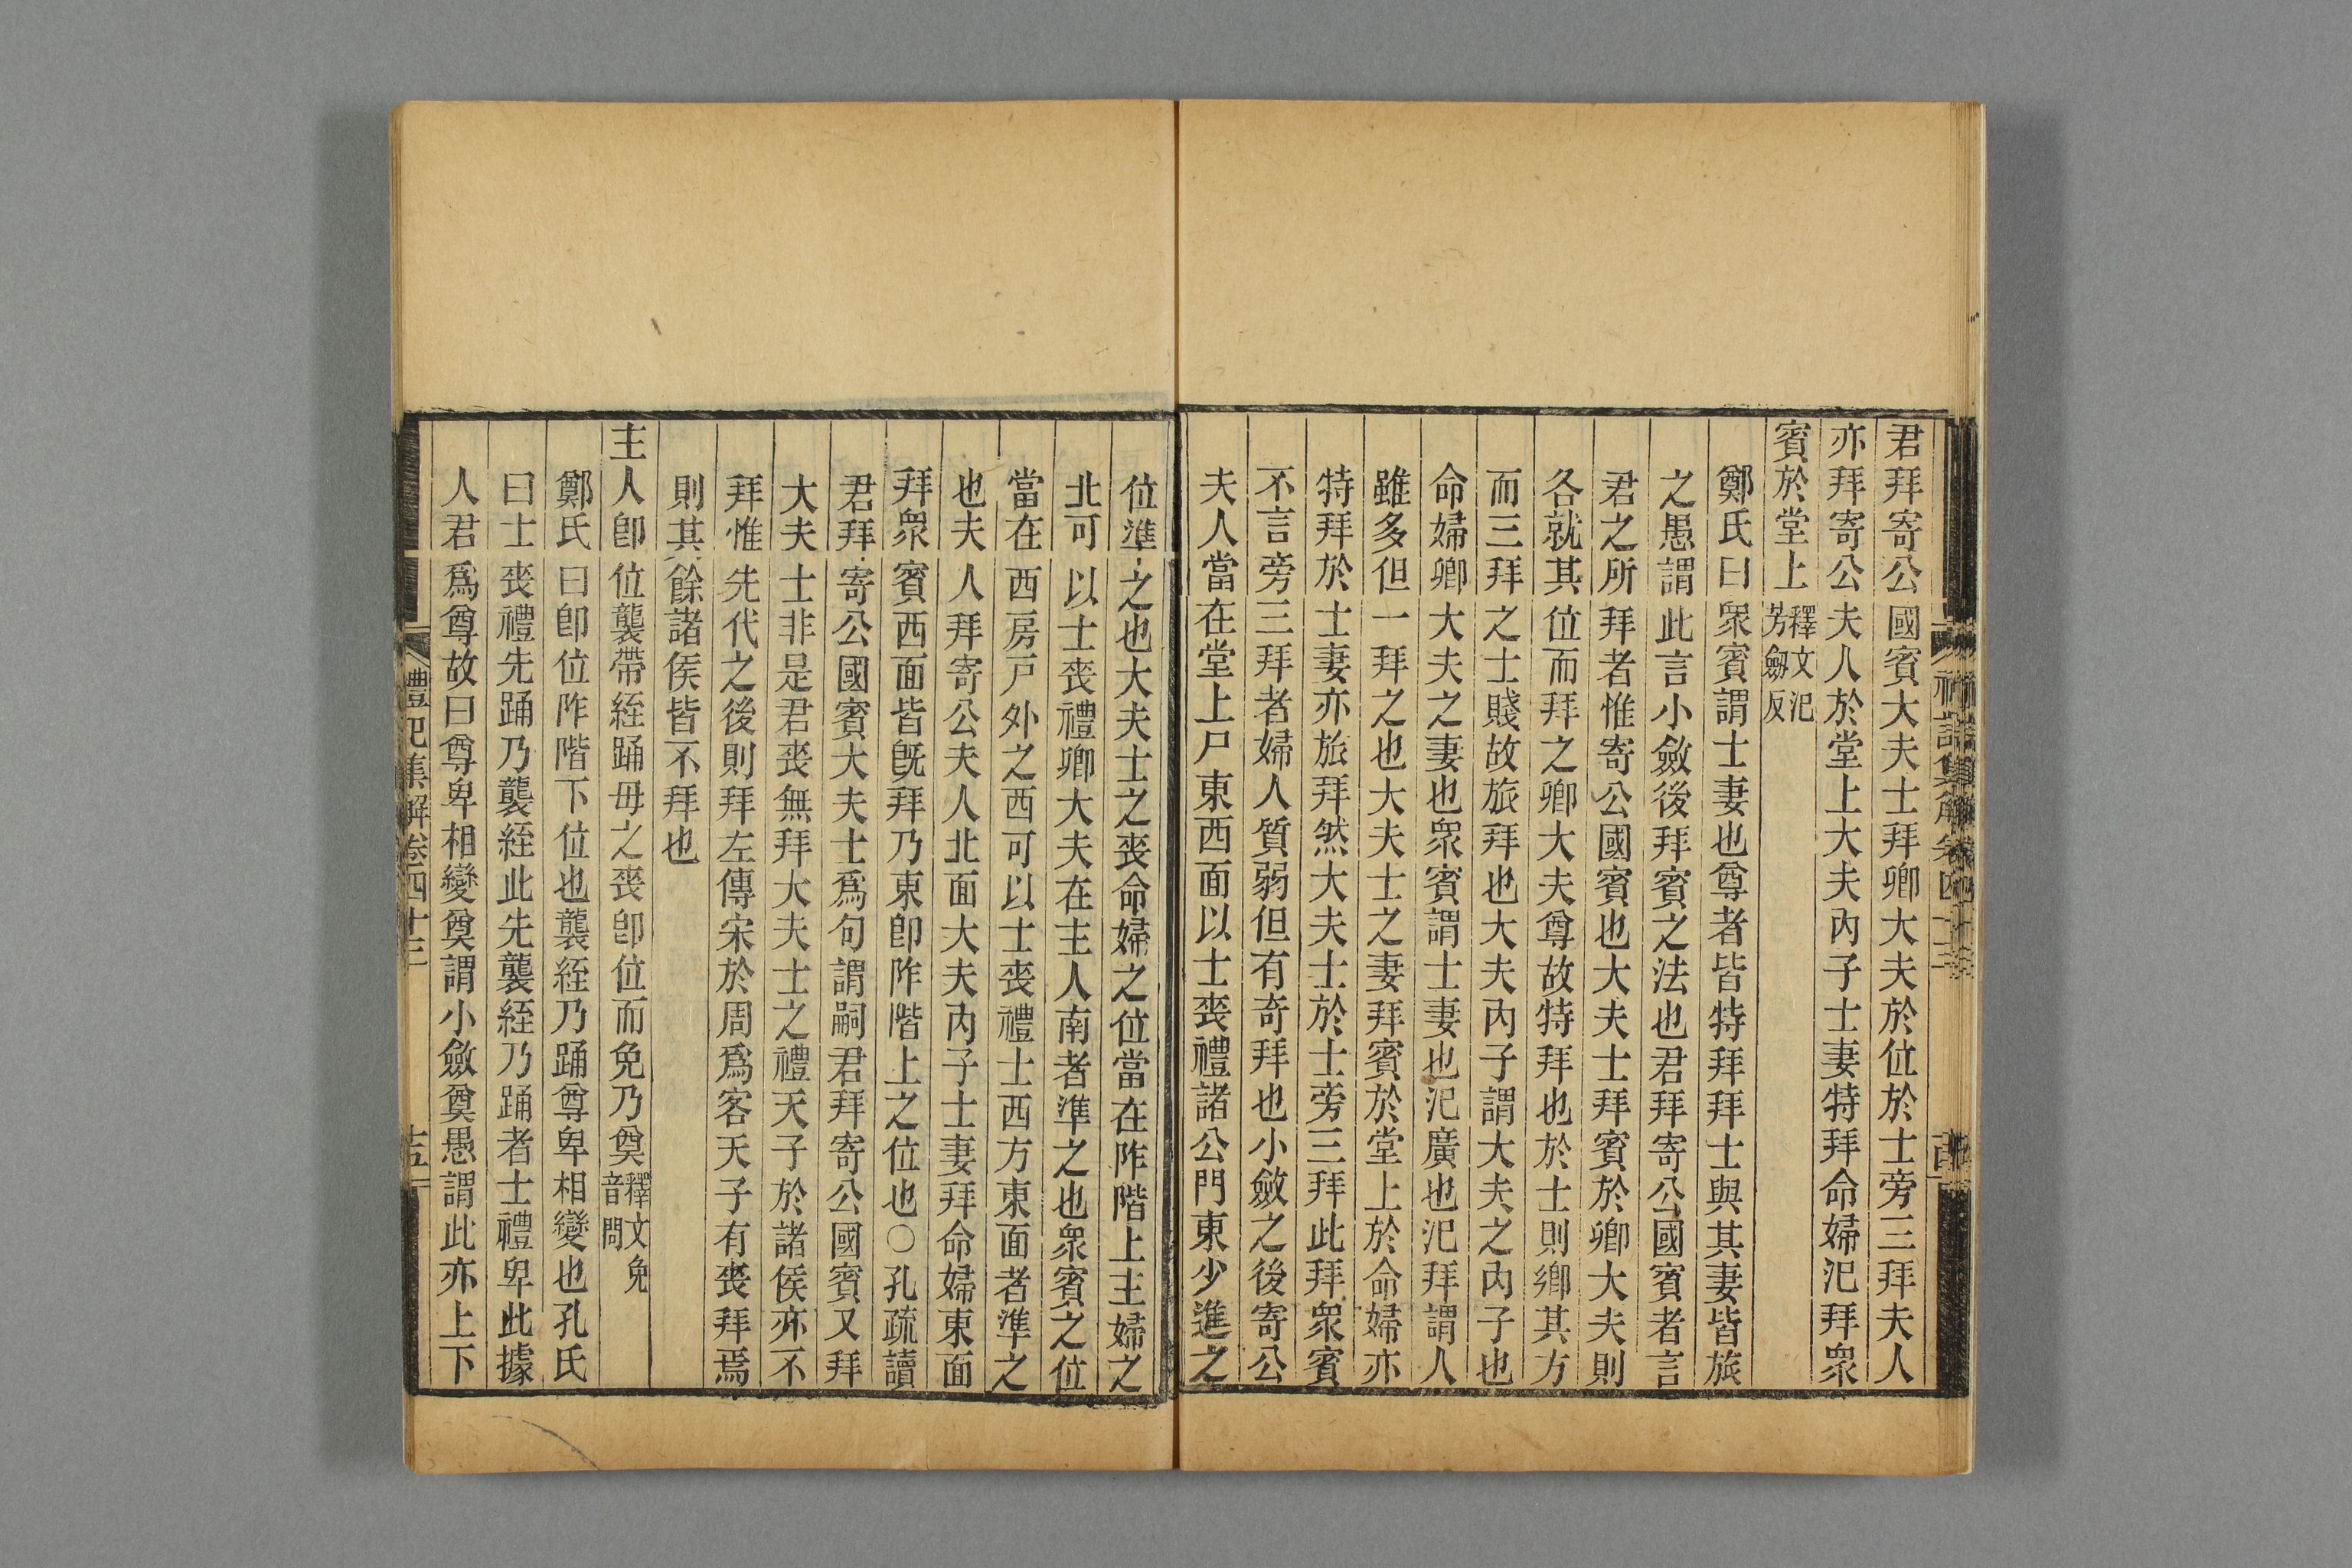 君拜寄公國賓大夫士拜卿大夫於位於士旁三拜夫人
亦拜寄公夫人於堂上大夫內子士妻特拜命婦氾拜衆
賓於堂上釋文氾芳劒反
鄭氏曰衆賓謂士妻也尊者皆特拜拜士與其妻皆旅
之愚謂此言小斂後拜賓之法也君拜寄公國賓者言
君之所拜者惟寄公國賓也大夫士拜賓於卿大夫則
各就其位而拜之卿大夫尊故特拜也於士則鄉其方
而三拜之士賤故旅拜也大夫內子謂大夫之內子也
命婦卿大夫之妻也衆賓謂士妻也氾廣也氾拜謂人
雖多但一拜之也大夫士之妻拜賓於堂上於命婦亦
特拜於士妻亦旅拜然大夫士於士旁三拜此拜衆賓
不言旁三拜者婦人質弱但有奇拜也小斂之後寄公
夫人當在堂上尸東西面以士喪禮諸公門東少進之
位準之也大夫士之喪命婦之位當在阼階上主婦之
北可以士喪禮卿大夫在主人南者準之也衆賓之位
當在西房戸外之西可以士喪禮士西方東面者準之
也夫人拜寄公夫人北面大夫內子士妻拜命婦東面
拜衆賓西面皆旣拜乃東卽阼階上之位也○孔疏讀
君拜寄公國賓大夫士爲句謂嗣君拜寄公國賓又拜
大夫士非是君喪無拜大夫士之禮天子於諸侯亦不
拜惟先代之後則拜左傳宋於周爲客天子有喪拜焉
則其餘諸侯皆不拜也
主人卽位襲帶絰踊毋之喪卽位而免乃奠釋文免音問
鄭氏曰卽位阼階下位也襲絰乃踊尊卑相變也孔氏
曰士喪禮先踊乃襲絰此先襲絰乃踊者士禮卑此據
人君爲尊故曰尊卑相變奠謂小斂奠愚謂此亦上下
禮記集解卷四十三